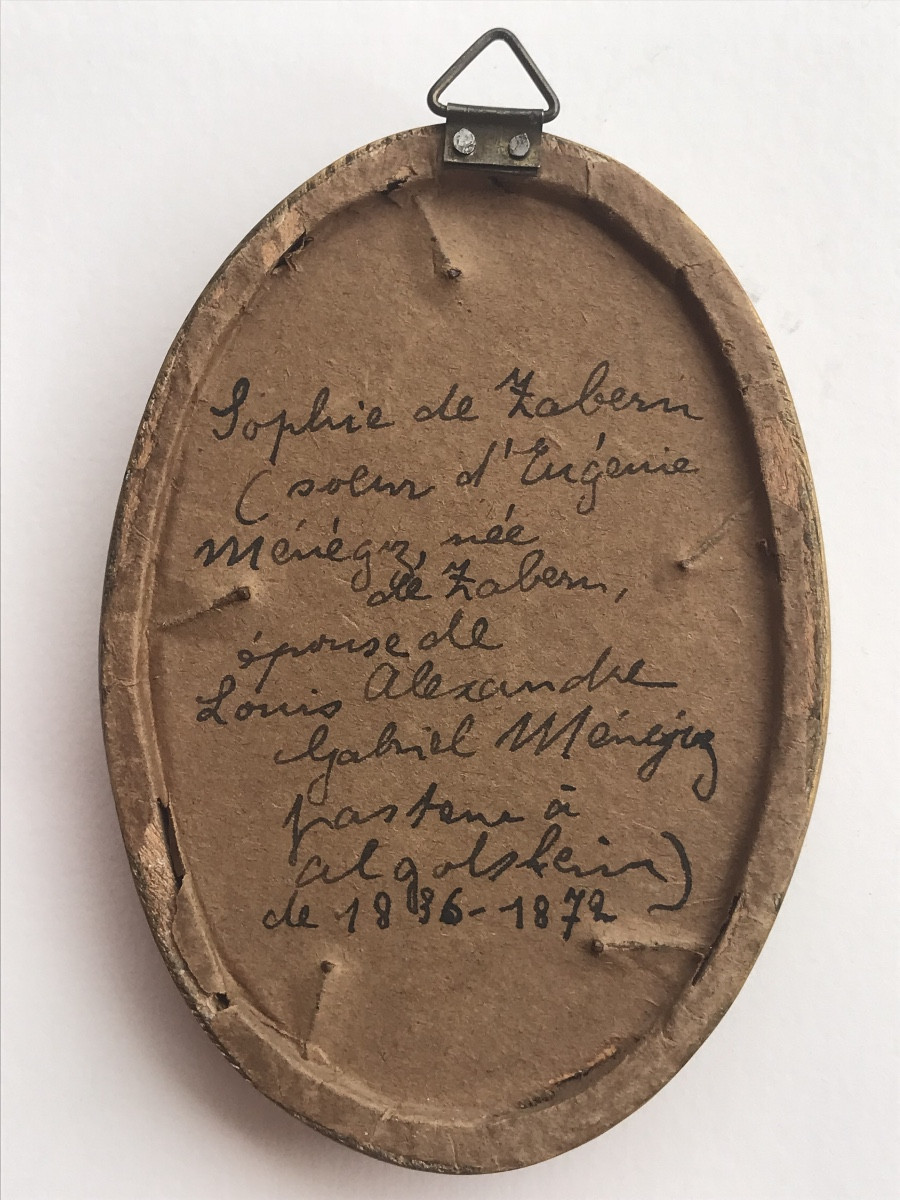 Sophie de Zabern
(soeur d'Eugénie
Ménégoz, née
de Zabern,
épouse de
Louis Alexandre
Gabriel Ménégoz
pasteur à
Algolsheim)
de 1836-1872